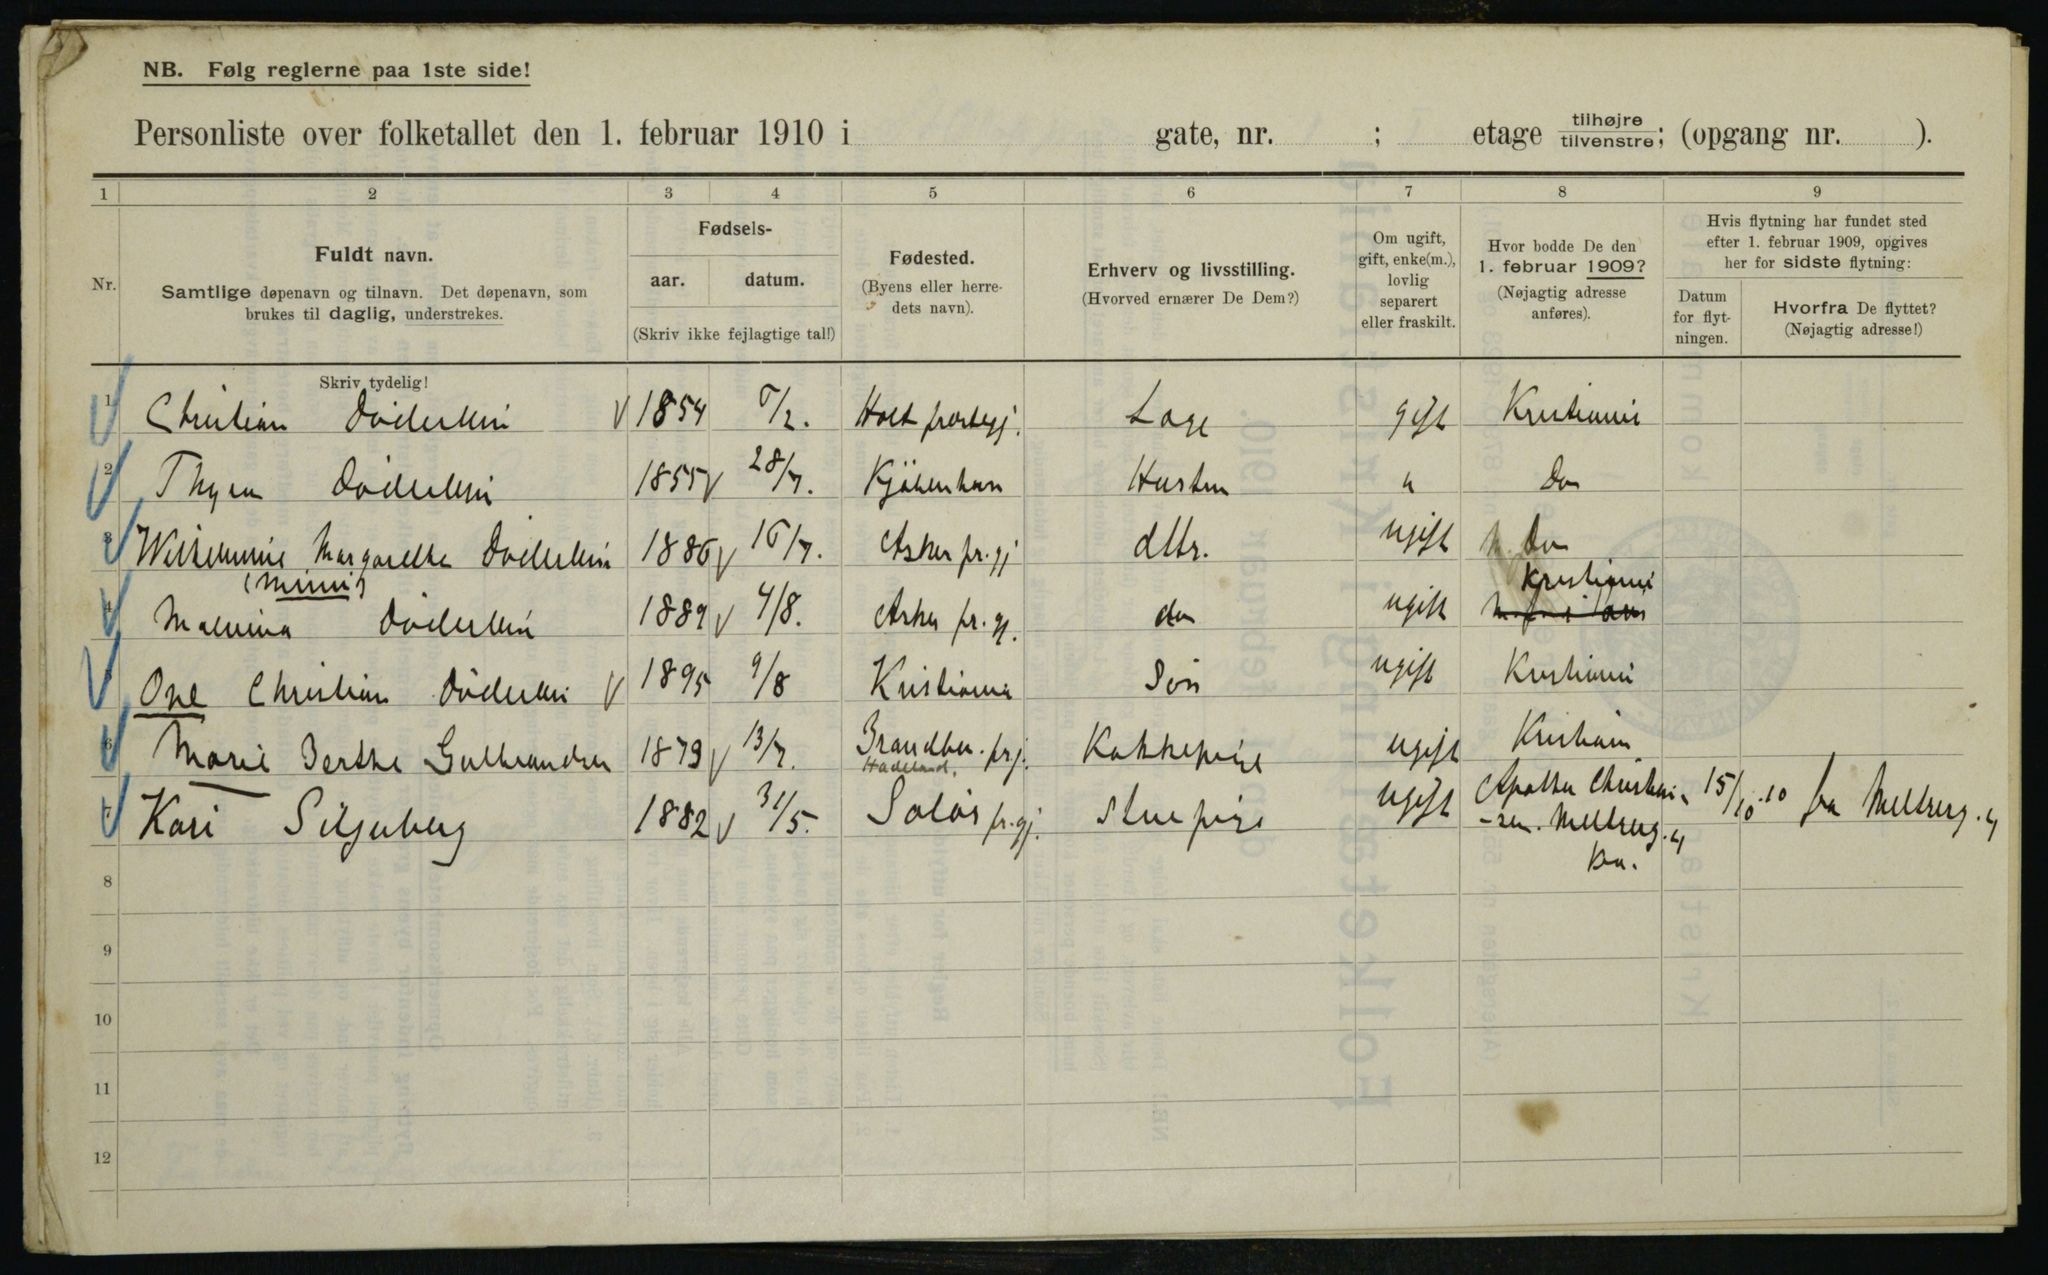 NB. Følg reglerne paa 1ste side!
Personliste over folketallet den 1. februar 1910 i gate, nr. ; etage tilhøjre/tilvenstre; (opgang nr. ).
1 2 3 4 5 6 7 8 9
Nr.
Fuldt navn.
Samtlige døpenavn og tilnavn. Det døpenavn, som
brukes til daglig, understrekes.
Skriv tydelig!
Fødsels-
aar. datum.
(Skriv ikke fejlagtige tal!)
Fødested.
(Byens eller herre-
dets navn).
Erhverv og livsstilling.
(Hvorved ernærer De Dem?)
Om ugift,
gift, enke(m.),
lovlig
separert
eller fraskilt.
Hvor bodde De den
1. februar 1909?
(Nøjagtig adresse
anføres).
Hvis flytning har fundet sted
efter 1. februar 1909, opgives
her for sidste flytning:
Datum
for flyt-
ningen.
Hvorfra De flyttet?
(Nøjagtig adresse!)
1 Christian Döderlein 1854 Holt præstegj. Læge gift Kristiania
2 Thyra Döderlein 1855 28/7. Kjöbenhavn Hustru " Do
3 Wilhelmine Margarethe Döderlein 1886 16/7. Asker pr.gj dttr. ugift Do
(Mimi)
4 Malvina Döderlein 1889 4/8. Asker pr.gj. do ugift Kristiania
5 Ove Christian Döderlein 1895 9/8 Kristiania Sön ugift Kristiania
6 Marie Berthe Gulbrandsen 1879 13/7. Brandbu prgj. Kokkepige ugift Kristiania
Hadeland.
7 Kari Siljuberg 1882 31/5. Solör pr.gj. Stuepige ugift Apother Christian- 15/10.10 fra Meltzerg. 4
-sen. Meltzerg. 4
Kra.
8
9
10
11
12